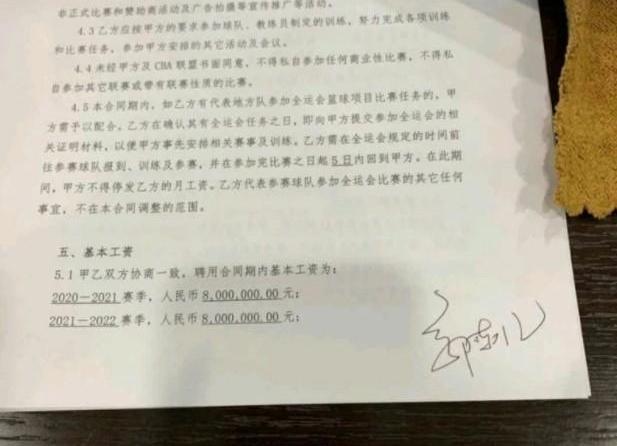 非正式比赛和赞助商活动及广告拍摄等宣传推广等活动。
4.3乙方应按甲方的要求参加球队、教练员制定的训练，努力完成各项训
和比赛任务，参加甲方安排的其它活动及会议。
4.4未经甲方及CBA联盟书面同意，不得私自参加任何商业性比赛，不得私
自参加其它联赛或带有联赛性质的比赛。
4.5本合同期内，如乙方有代表地方队参加全运会篮球项目比赛任务的，甲
方需予以配合。乙方在确认其有全运会任务之日，即向甲方提交参加全运会的相
关证明材料，以便甲方事先安排相关赛事及训练。乙方需在全运会规定的时间前
往参赛球队报到、训练及参赛，并在参加完比赛之日起5日内回到甲方。在此期
间，甲方不得停发乙方的月工资。乙方代表参赛球队参加全运会比赛的其它任何
事宜，不在本合同调整的范围。
五、基本工资
5.1甲乙双方协商一致，聘用合同期内基本工资为：
2020－2021赛季，人民币8,000,000.00元；
2021－2022赛季，人民币8,000,000.00元；